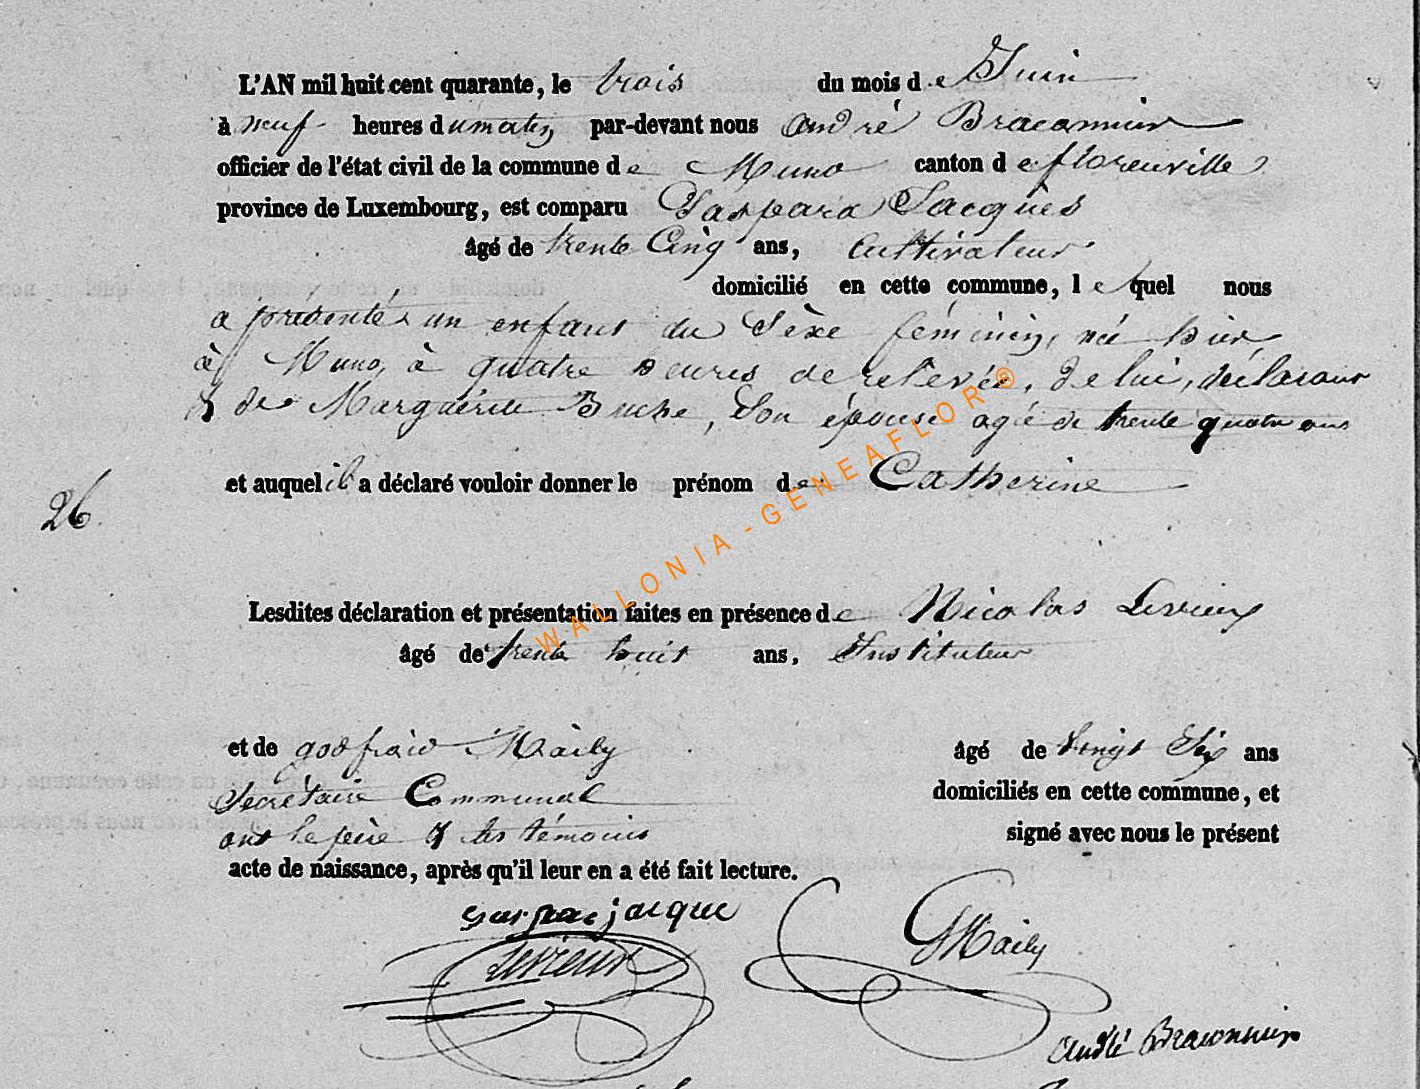 L'AN mil huit cent quarante, le trois du mois de Juin
à neuf heures du matin par-devant nous André Braconnier
officier de l'état civil de la commune de Muno canton de florenville
province de Luxembourg, est comparu Gaspard Jacques
âgé de trente Cinq ans, Cultivateur
domicilié en cette commune, lequel nous
a présenté un enfant du Sèxe féminin, née hier
à Muno, à quatre heures de relevée, de lui, déclarant
& de Marguérite Buche, Son épouse agée de trente quatre ans
et auquel il a déclaré vouloir donner le prénom de Catherine
26.
Lesdites déclaration et présentation faites en présence de Nicolas Levieux
âgé de trente huit ans, Instituteur
et de godfroid Maily âgé de vingt Six ans
Secrétaire Communal domiciliés en cette commune, et
ont le père & les témoins signé avec nous le présent
acte de naissance, après qu'il leur en a été fait lecture.
jacque
GMaily
André Braconnier
WALLONIA-GENEAFLOR®